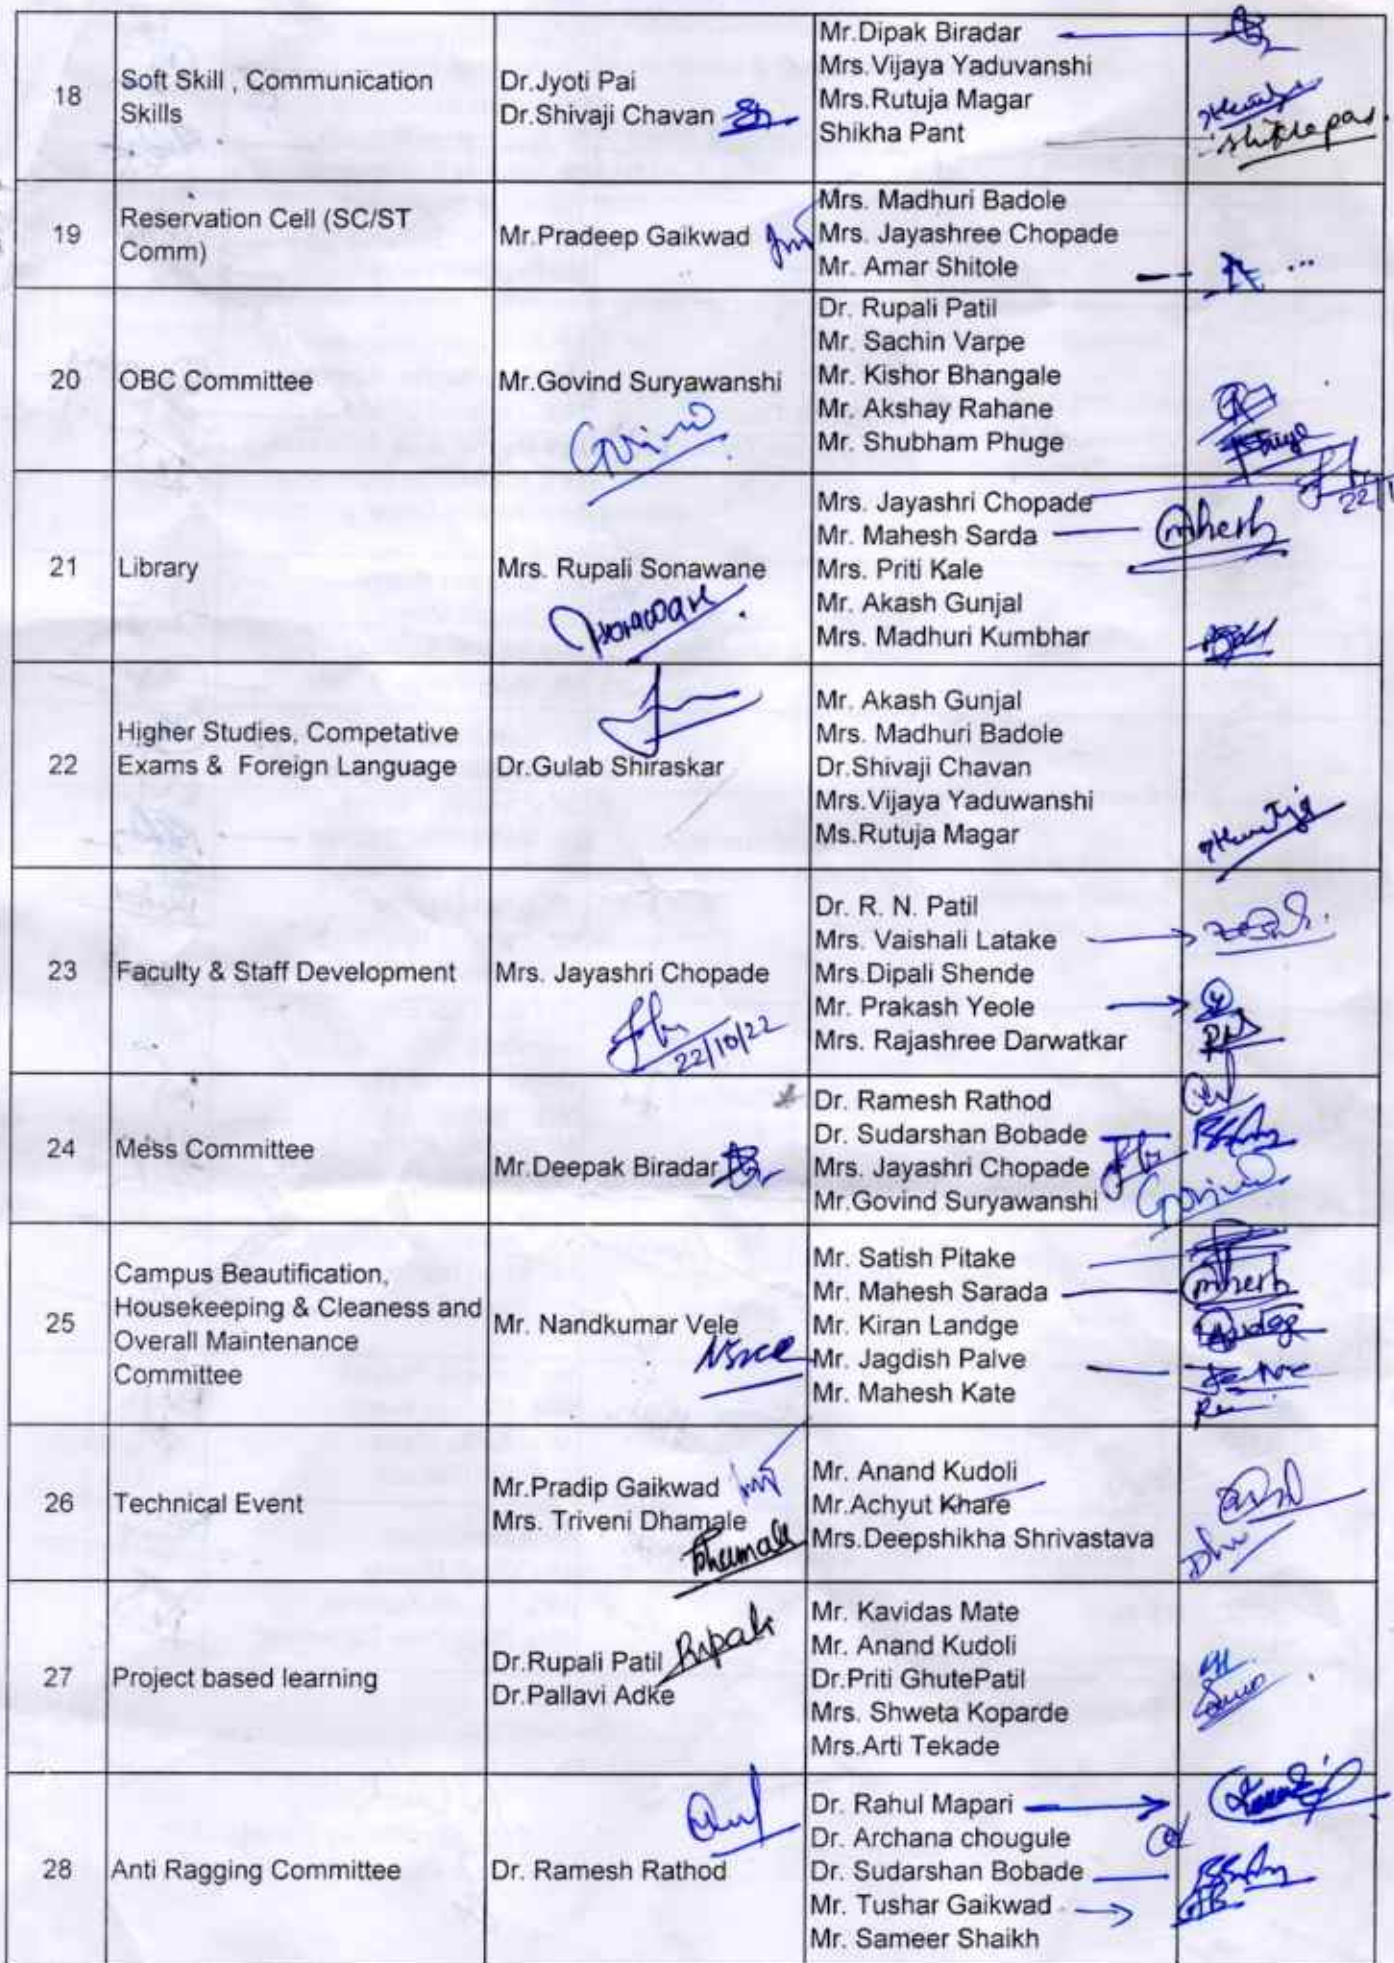 18
Soft Skill , Communication
Skills
Dr.Jyoti Pai
Dr.Shivaji Chavan
Mr.Dipak Biradar
Mrs.Vijaya Yaduvanshi
Mrs.Rutuja Magar
Shikha Pant
19
Reservation Cell (SC/ST
Comm)
Mr.Pradeep Gaikwad
Mrs. Madhuri Badole
Mrs. Jayashree Chopade
Mr. Amar Shitole
20
OBC Committee
Mr.Govind Suryawanshi
Govind
Dr. Rupali Patil
Mr. Sachin Varpe
Mr. Kishor Bhangale
Mr. Akshay Rahane
Mr. Shubham Phuge
21
Library
Mrs. Rupali Sonawane
Mrs. Jayashri Chopade
Mr. Mahesh Sarda
Mrs. Priti Kale
Mr. Akash Gunjal
Mrs. Madhuri Kumbhar
22
Higher Studies, Competative
Exams & Foreign Language
Dr.Gulab Shiraskar
Mr. Akash Gunjal
Mrs. Madhuri Badole
Dr.Shivaji Chavan
Mrs.Vijaya Yaduwanshi
Ms.Rutuja Magar
23
Faculty & Staff Development
Mrs. Jayashri Chopade
22/10/22
Dr. R. N. Patil
Mrs. Vaishali Latake
Mrs.Dipali Shende
Mr. Prakash Yeole
Mrs. Rajashree Darwatkar
24
Mess Committee
Mr.Deepak Biradar
Dr. Ramesh Rathod
Dr. Sudarshan Bobade
Mrs. Jayashri Chopade
Mr.Govind Suryawanshi
Govind
25
Campus Beautification,
Housekeeping & Cleaness and
Overall Maintenance
Committee
Mr. Nandkumar Vele
Mr. Satish Pitake
Mr. Mahesh Sarada
Mr. Kiran Landge
Mr. Jagdish Palve
Mr. Mahesh Kate
26
Technical Event
Mr.Pradip Gaikwad
Mrs. Triveni Dhamale
Mr. Anand Kudoli
Mr.Achyut Khare
Mrs.Deepshikha Shrivastava
27
Project based learning
Dr.Rupali Patil
Dr.Pallavi Adke
Mr. Kavidas Mate
Mr. Anand Kudoli
Dr.Priti GhutePatil
Mrs. Shweta Koparde
Mrs.Arti Tekade
28
Anti Ragging Committee
Dr. Ramesh Rathod
Dr. Rahul Mapari
Dr. Archana chougule
Dr. Sudarshan Bobade
Mr. Tushar Gaikwad
Mr. Sameer Shaikh